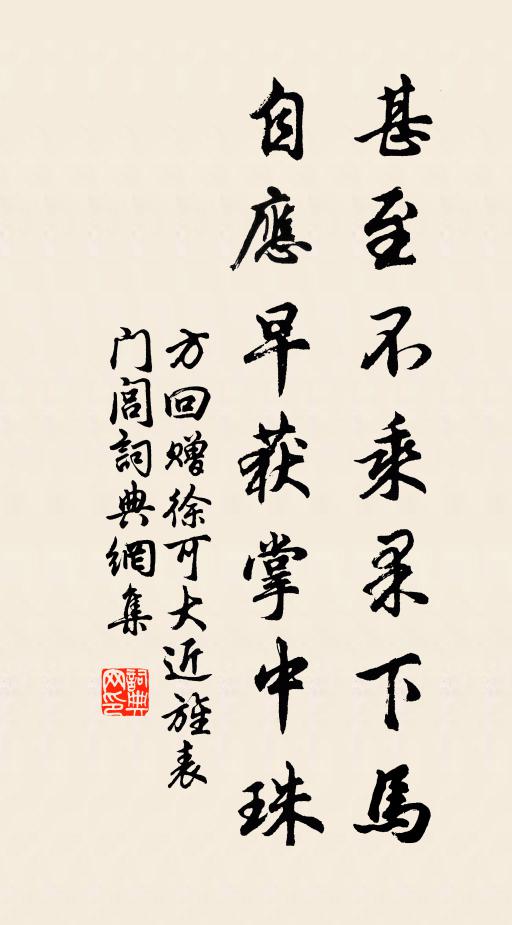 甚至不乘果下馬
自應早获掌中珠
方回赠徐可大近旌表
门闾詞典網集
詞典
网印